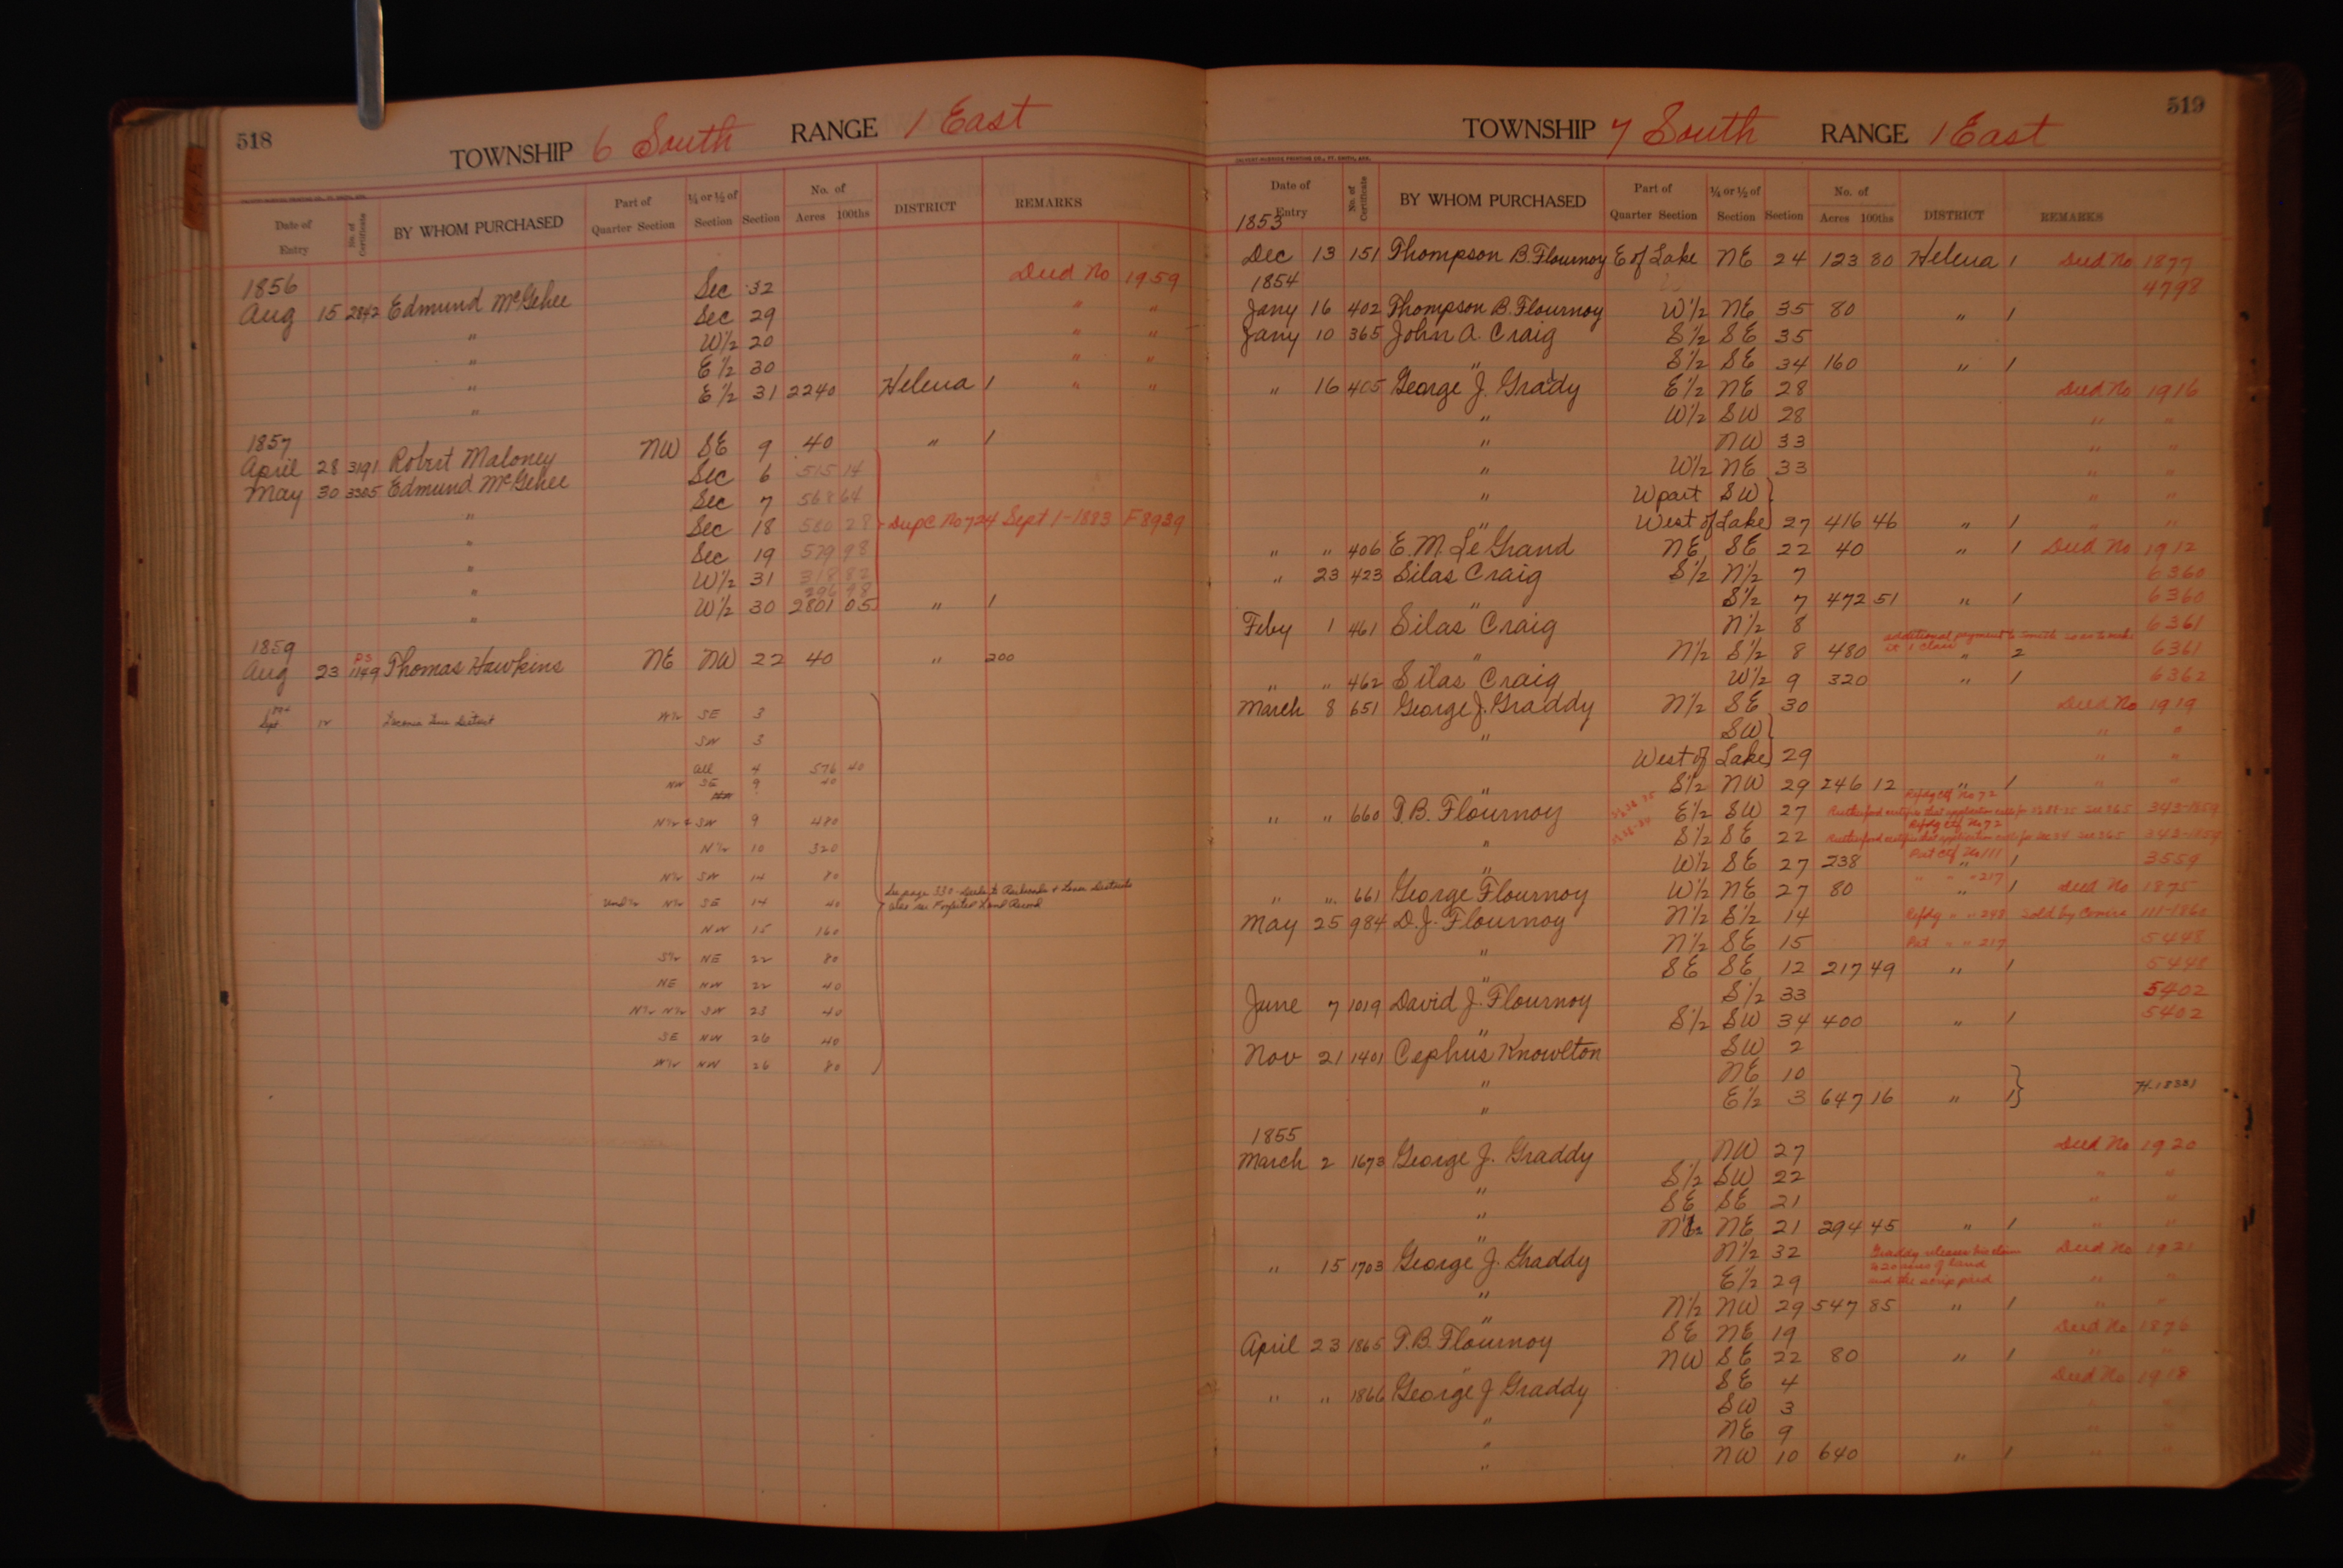 518
TOWNSHIP 6 South RANGE 1 East
Date of Entry No. of Certificate BY WHOM PURCHASED Part of Quarter Section ¼ or ½ of Section Section No. of Acres 100ths DISTRICT REMARKS
1856 Sec 32 Deed No 1959
Aug 15 2842 Edmund McGehee Sec 29 " "
" W½ 20 " "
" E½ 30 " "
" E½ 31 2240 Helena 1 " "
"
1857 NW SE 9 40 " 1
April 28 3191 Robert Maloney Sec 6 515 14
May 30 3305 Edmund McGehee Sec 7 568 64
" Sec 18 580 28 Dup C No 724 Sept 1-1883 F8939
" Sec 19 579 98
" W½ 31 318 82
" W½ 30 296 98 2801 05 " 1
"
1859
Aug 23 PS 1149 Thomas Hawkins NE NW 22 40 " 200
Sept 12 W½ SE 3
SW 3
All 4 576 40
NW SE 9 40
N½ & SW 9 480
N½ 10 320
N½ SW 14 80 See page 330
N½ SE 14 40
NW 15 160
S½ NE 22 80
NE NW 22 40
N½ N½ SW 23 40
SE NW 26 40
W½ NW 26 80
519
TOWNSHIP 7 South RANGE 1 East
Date of Entry No. of Certificate BY WHOM PURCHASED Part of Quarter Section ¼ or ½ of Section Section No. of Acres 100ths DISTRICT REMARKS
1853
Dec 13 151 Thompson B. Flournoy E of Lake NE 24 123 80 Helena 1 Deed No 1877
1854 4798
Jany 16 402 Thompson B. Flournoy W½ NE 35 80 " 1
Jany 10 365 John A. Craig S½ SE 35
" S½ SE 34 160 " 1
" 16 405 George J. Graddy E½ NE 28 Deed No 1916
" W½ SW 28 " "
" NW 33 " "
" W½ NE 33 " "
" W part SW " "
" West of Lake 27 416 46 " 1 " "
" " 406 E. M. Le Grand NE SE 22 40 " 1 Deed No 1912
" 23 423 Silas Craig S½ N½ 7 6360
" S½ 7 472 51 " 1 6360
Feby 1 461 Silas Craig N½ 8 6361
" N½ S½ 8 480 additional payment to it 1 Class " 2 6361
" " 462 Silas Craig W½ 9 320 " 1 6362
March 8 651 George J. Graddy N½ SE 30 Deed No 1919
" SW " "
West of Lake 29 " "
" S½ NW 29 246 12 " 1 " "
" " 660 T. B. Flournoy E½ SW 27 Refdg Ctf No 72 343-1859
" S½ SE 22 Refdg Ctf No 72 343-1859
" W½ SE 27 238 Pat Ctf No 111 " 1 3559
" " 661 George Flournoy W½ NE 27 80 " " " 217 " 1 Deed No 1875
May 25 984 D. J. Flournoy N½ S½ 14 Refdg " " 248 Sold by Comrs 111-1860
" N½ SE 15 Pat " " 217 5448
" SE SE 12 217 49 " 1 5448
June 7 1019 David J. Flournoy S½ 33 5402
" S½ SW 34 400 " 1 5402
Nov 21 1401 Cephus Knowlton SW 2
" NE 10
" E½ 3 647 16 " 1 H-18331
1855
March 2 1673 George J. Graddy NW 27 Deed No 1920
" S½ SW 22 " "
" SE SE 21 " "
" N½ NE 21 294 45 " 1 " "
" 15 1703 George J. Graddy N½ 32 Graddy releases his claim Deed No 1921
" E½ 29 to 20 acres of land and the scrip paid " "
" N½ NW 29 547 85 " 1 " "
April 23 1865 T. B. Flournoy SE NE 19 Deed No 1876
" NW SE 22 80 " 1 " "
" " 1866 George J Graddy SE 4 Deed No 1918
" SW 3
" NE 9 "
" NW 10 640 " 1 " "